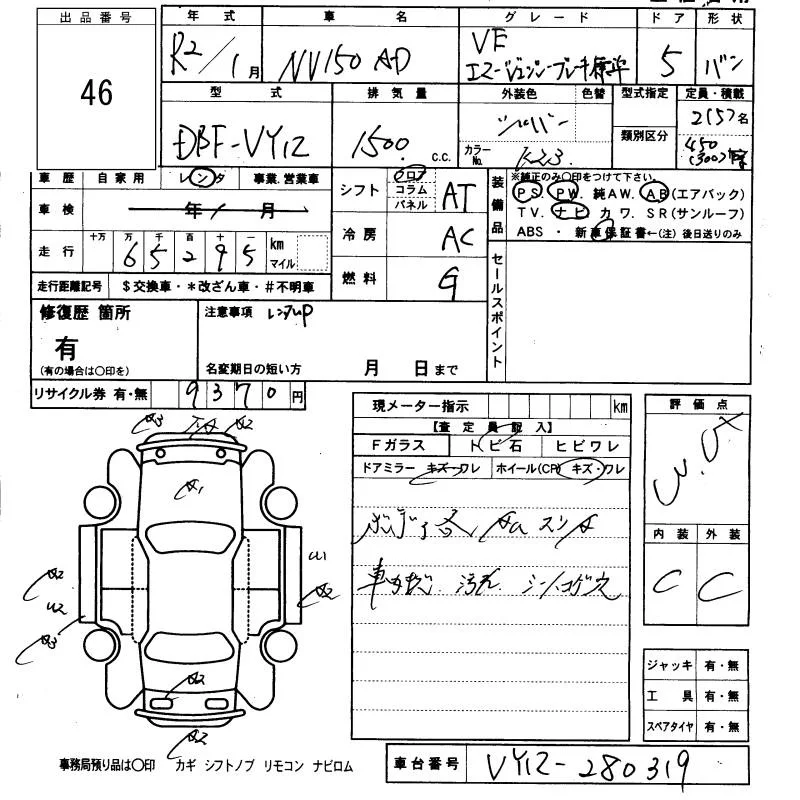 出品番号
46
年式 車名 グレード ドア 形状
R2/1月 NV150 AD VE 5 バン
エマージェンシーブレーキ標準
型式 排気量 外装色 色替 型式指定 定員・積載
DBF-VY12 1500 c.c. シルバー 2(5)名
カラーNo. K23 類別区分 450(300)
車歴 自家用 レンタ 事業.営業車
車検 年 月
走行 十万 万 千 百 十 一 km マイル
65295
走行距離記号 $交換車・*改ざん車・#不明車
シフト フロア コラム パネル AT
冷房 AC
燃料 G
装備品 ※純正のみ○印をつけて下さい。
PS. PW. 純AW. AB(エアバック)
TV. ナビ カワ. SR(サンルーフ)
ABS ・ 新車保証書←(注)後日送りのみ
セールスポイント
修復歴 箇所
有
(有の場合は○印を)
注意事項 レンタUP
名変期日の短い方 月 日まで
リサイクル券 有・無 9370円
現メーター指示 km
【査定員記入】
Fガラス トビ石 ヒビワレ
ドアミラー キズ・ワレ ホイール(CP) キズ・ワレ
ボディ各 Aa スリA
車内 汚れ. シートコゲ穴
評価点
内装 外装
C C
A3 A2
A1
U1
A2 A2
U2
A3
A2
A2
ジャッキ 有・無
工具 有・無
スペアタイヤ 有・無
事務局預り品は○印 カギ シフトノブ リモコン ナビロム
車台番号 VY12-280319